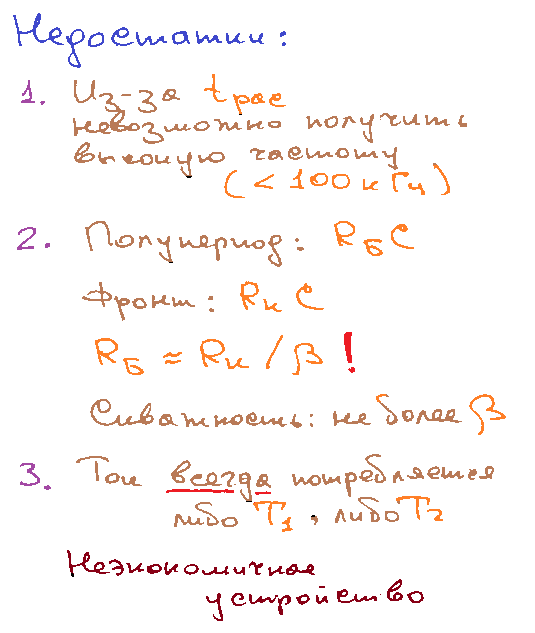 Недостатки:
1. Из-за tрас
невозможно получить
высокую частоту
(< 100 кГц)
2. Полупериод: RБC
Фронт: RкC
RБ ≈ Rк / β !
Скважность: не более β
3. Ток всегда потребляется
либо T1, либо T2
Неэкономичное
устройство